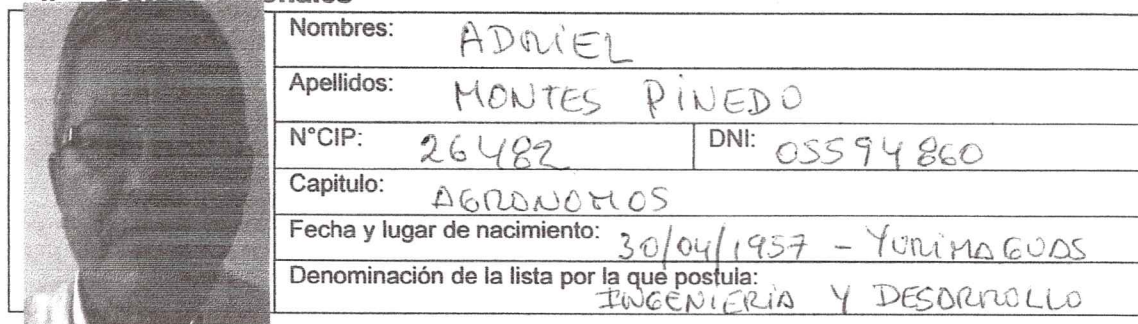 Nombres: ADRIEL
Apellidos: MONTES PINEDO
N°CIP: 26482 DNI: 05594860
Capitulo: AGRONOMOS
Fecha y lugar de nacimiento: 30/04/1957 - YURIMAGUAS
Denominación de la lista por la que postula:
INGENIERIA Y DESARROLLO